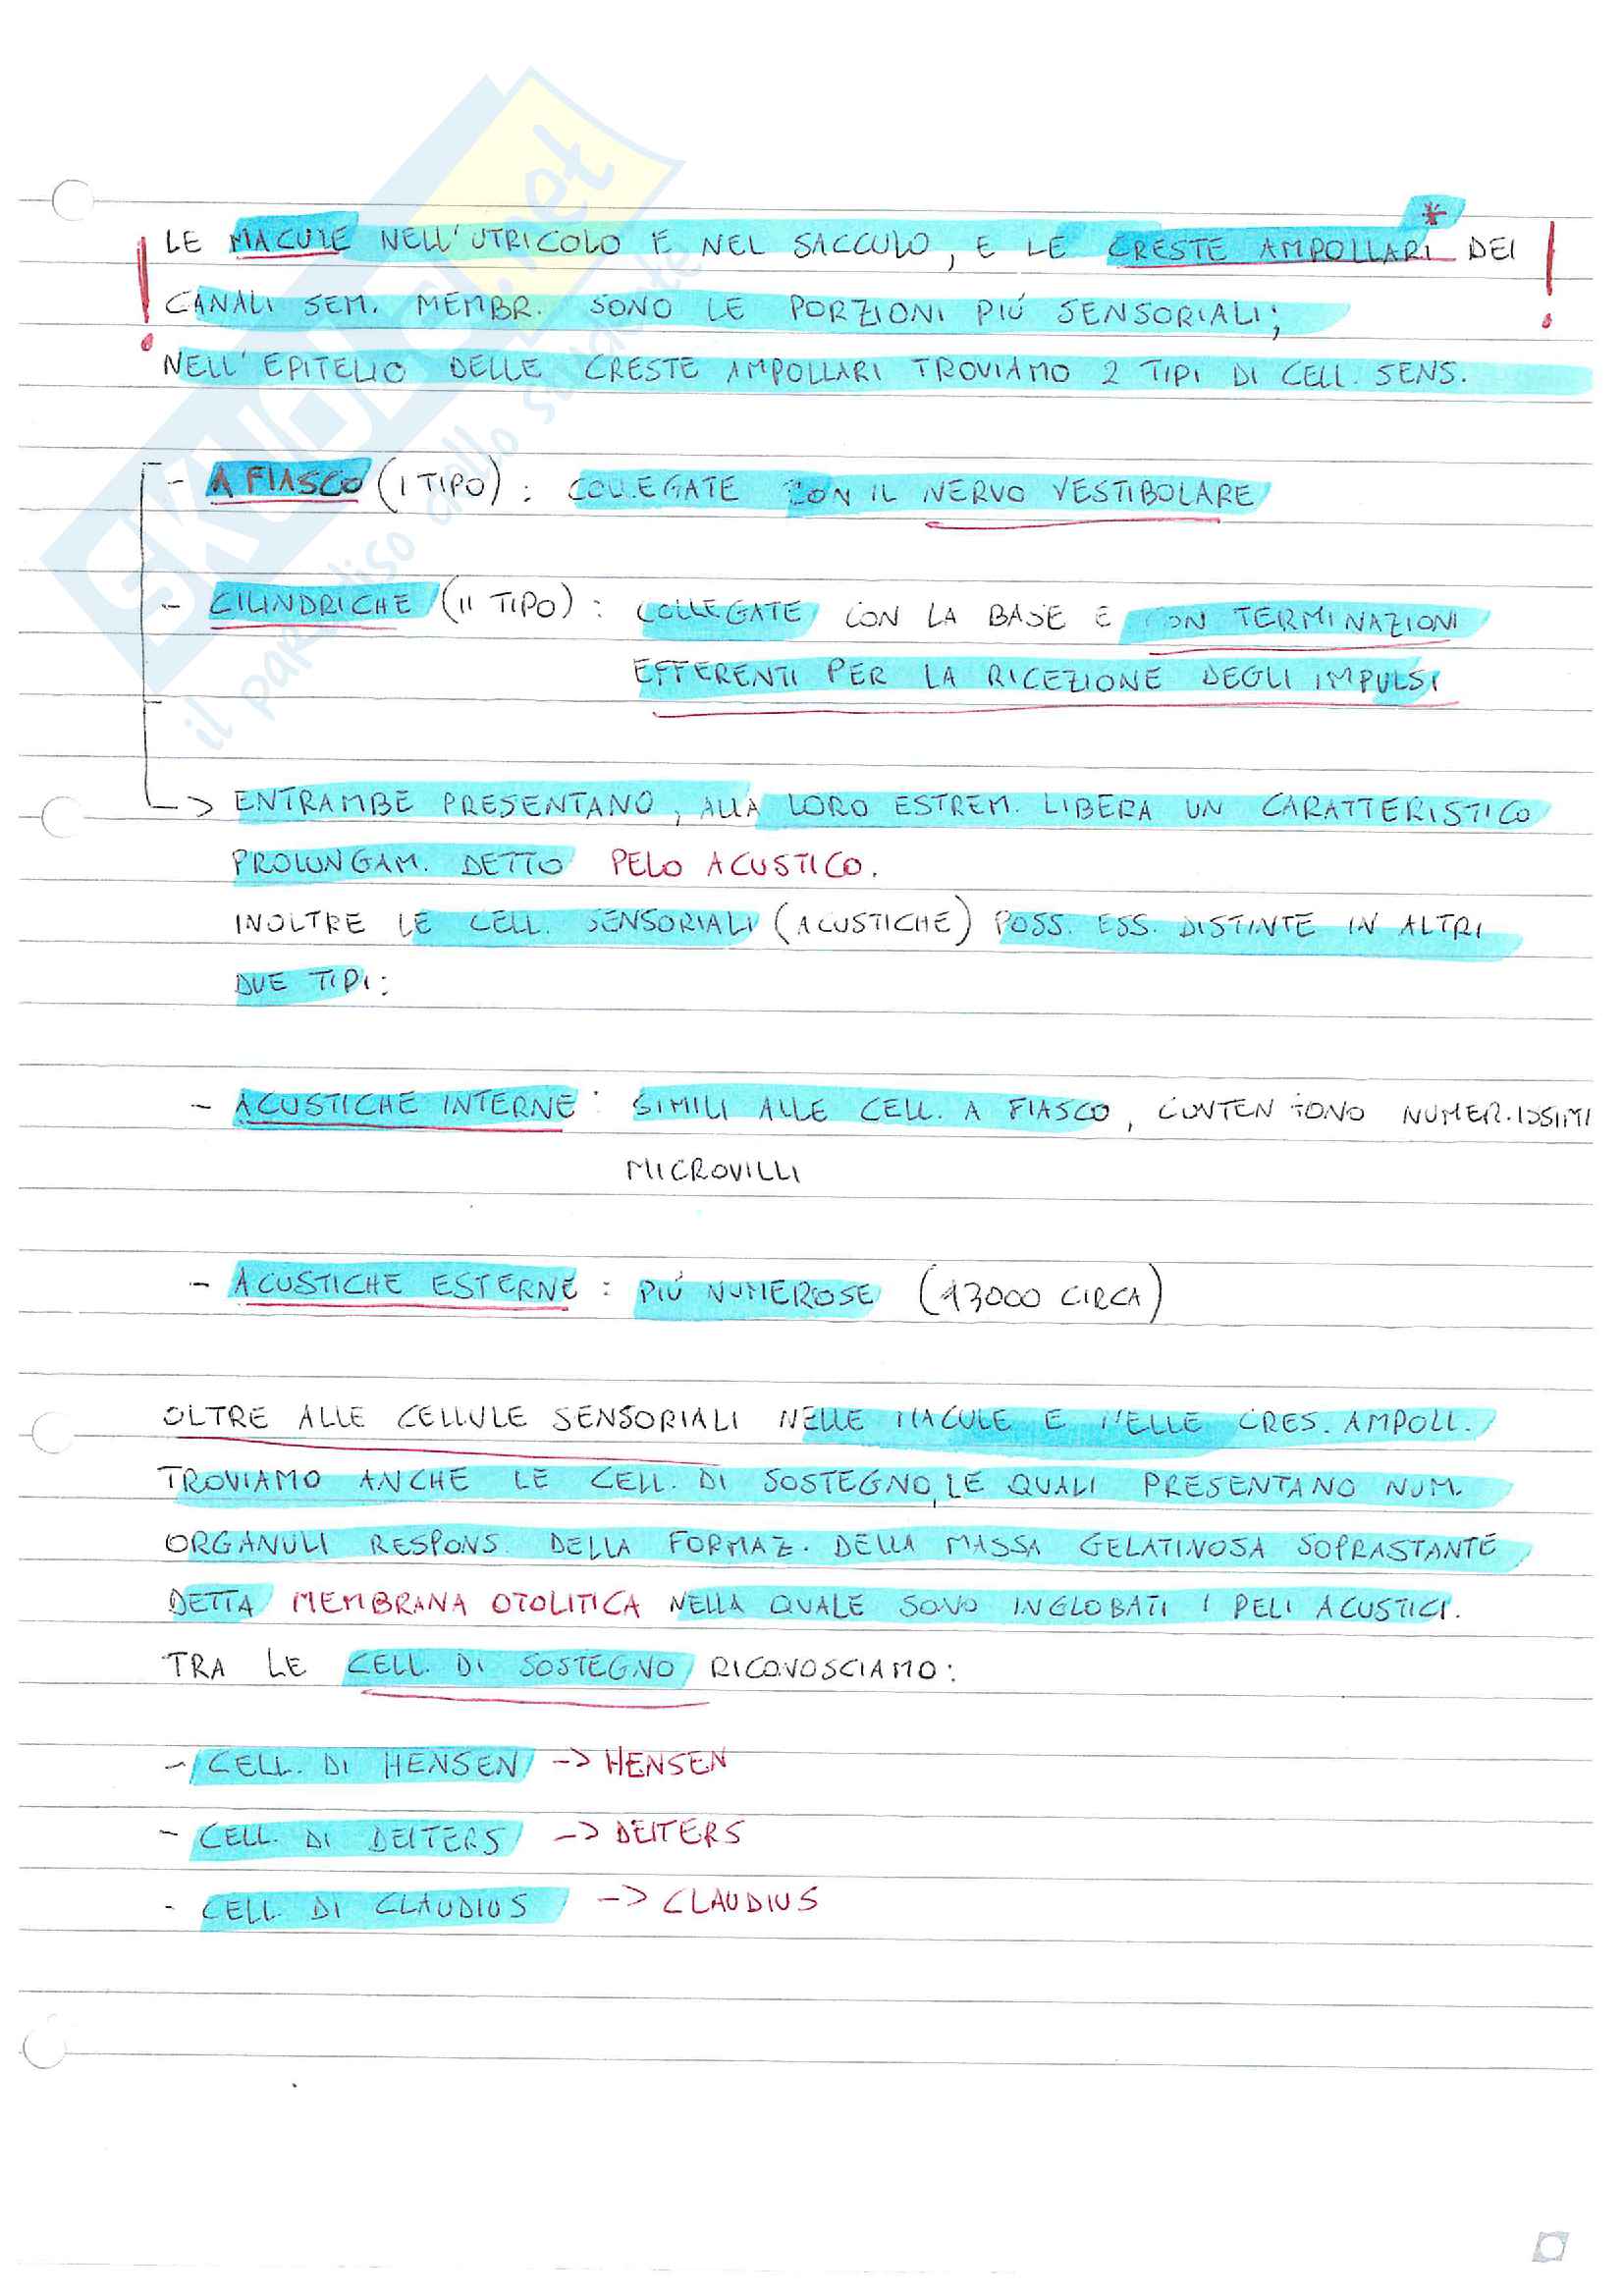 LE MACULE NELL'UTRICOLO E NEL SACCULO, E LE CRESTE AMPOLLARI* DEI
CANALI SEM. MEMBR. SONO LE PORZIONI PIÚ SENSORIALI;
NELL'EPITELIO DELLE CRESTE AMPOLLARI TROVIAMO 2 TIPI DI CELL. SENS.
- A FIASCO (I TIPO): COLLEGATE CON IL NERVO VESTIBOLARE
- CILINDRICHE (II TIPO): COLLEGATE CON LA BASE E CON TERMINAZIONI
EFFERENTI PER LA RICEZIONE DEGLI IMPULSI
-> ENTRAMBE PRESENTANO, ALLA LORO ESTREM. LIBERA UN CARATTERISTICO
PROLUNGAM. DETTO PELO ACUSTICO.
INOLTRE LE CELL. SENSORIALI (ACUSTICHE) POSS. ESS. DISTINTE IN ALTRI
DUE TIPI:
- ACUSTICHE INTERNE: SIMILI ALLE CELL. A FIASCO, CONTENGONO NUMER.ISSIMI
MICROVILLI
- ACUSTICHE ESTERNE: PIÚ NUMEROSE (13000 CIRCA)
OLTRE ALLE CELLULE SENSORIALI NELLE MACULE E NELLE CRES. AMPOLL.
TROVIAMO ANCHE LE CELL. DI SOSTEGNO, LE QUALI PRESENTANO NUM.
ORGANULI RESPONS. DELLA FORMAZ. DELLA MASSA GELATINOSA SOPRASTANTE
DETTA MEMBRANA OTOLITICA NELLA QUALE SONO INGLOBATI I PELI ACUSTICI.
TRA LE CELL. DI SOSTEGNO RICONOSCIAMO:
- CELL. DI HENSEN -> HENSEN
- CELL. DI DEITERS -> DEITERS
- CELL. DI CLAUDIUS -> CLAUDIUS
SKUOLA.net
il paradiso dello studente